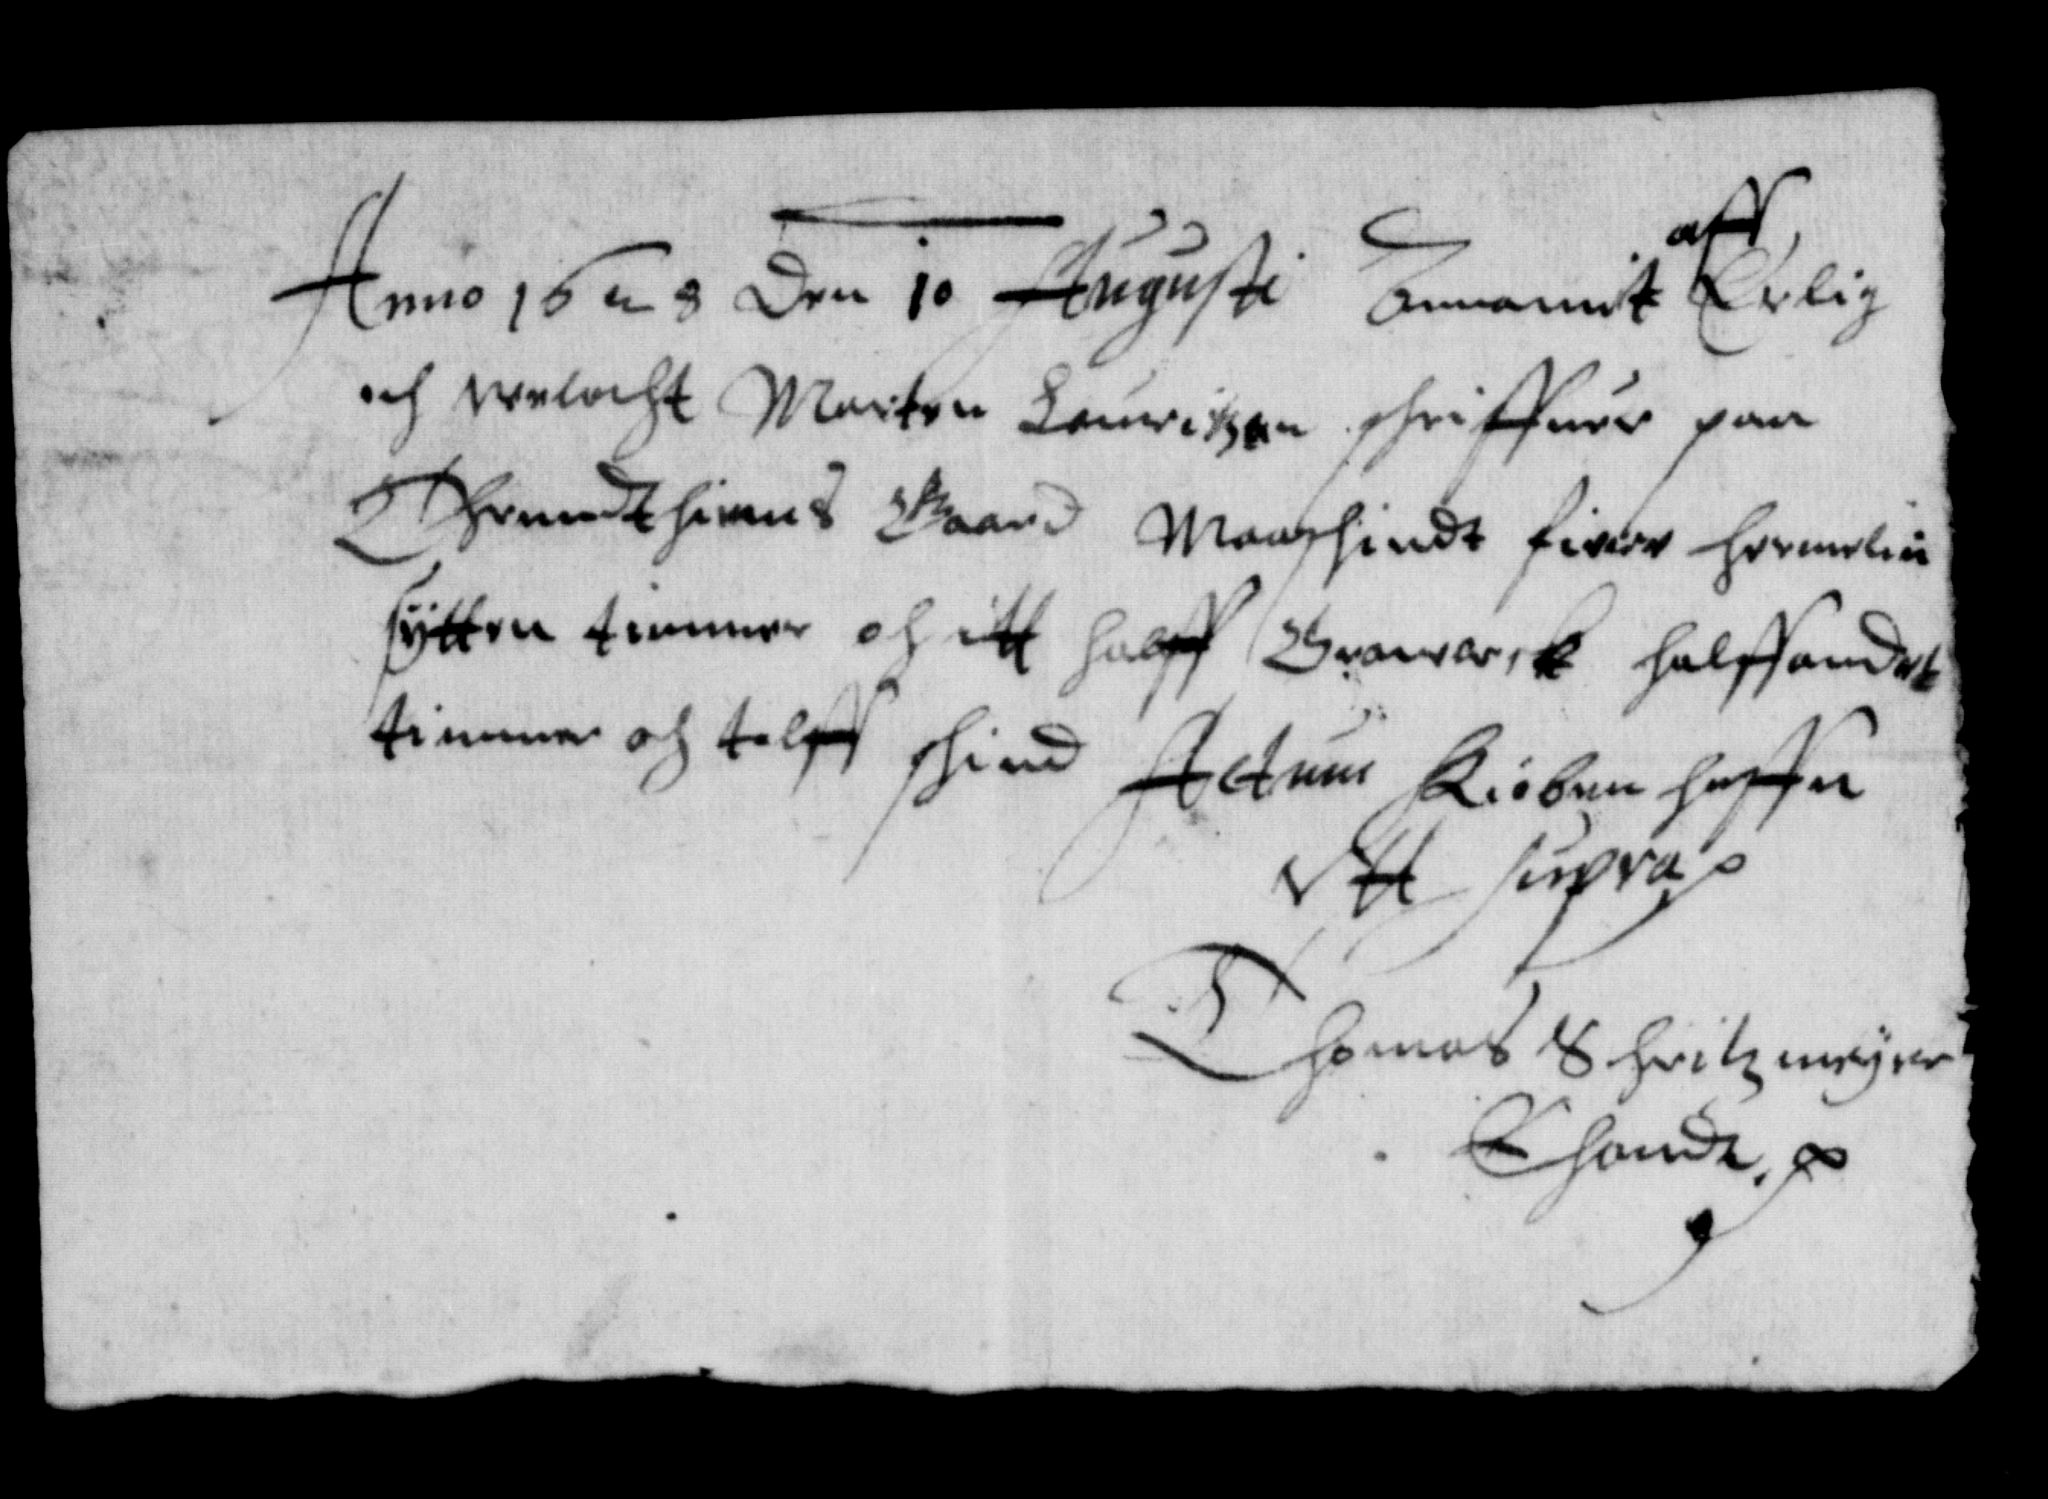 Anno 1628 Den 10 Augusti Annamit aff Erlig
och welacht Morten Lauritzen schriffuer paa
Throndthiems Gaard Maarschindt fiere hermelin
sÿtten timmer och itt halff Grawerck halffandet
timmer och tolff schind Actum Kiöbenhaffn
vtt supra
Thomas Schritzmeÿer
E handt